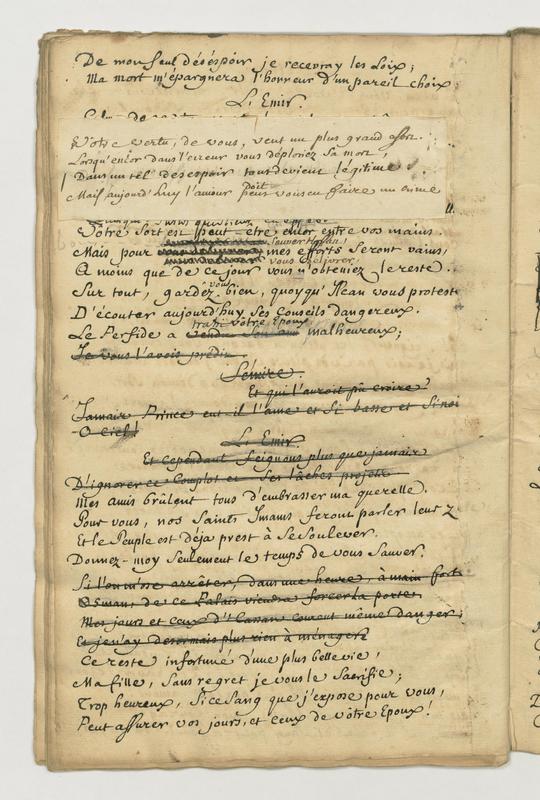 De mon seul désespoir je recevray les Loix;
Ma mort m'épargnera l'horreur d'un pareil choix;
L'Emir.
Vôtre vertu, de vous, veut un plus grand effort.
Lorsqu'encor dans l'erreur vous déploriez sa mort,
Dans un tel désespoir tout devient légitime
Mais aujourd'huy l'amour doit vous en faire un crime
Vôtre sort est peut-être encor entre vos mains.
sauver Hassan,
Mais pour mes efforts seront vains,
vous délivrer,
A moins que de ce jour vous n'obteniez le reste.
vous
Sur tout, gardez bien, quoyqu'Ilcan vous proteste
D'écouter aujourd'huy ses Conseils dangereux.
trahi vôtre Epoux
Le Perfide a vendu son ami malheureux;
Je vous l'avois prédit.
Sémire.
Et qui l'auroit pû croire?
Jamais Prince eut-il l'ame et si basse et si noi
O Ciel!
L'Emir.
Et cependant feignons plus que jamais
D'ignorer ce Complot et ses lâches projets
Mes amis brûlent tous d'embrasser ma querelle.
Pour vous, nos Saints Imams feront parler leur z
Et le Peuple est déja prest à se soulever.
Donnez-moy seulement le temps de vous sauver.
Si l'on m'ose arrêter, dans une heure, à main forte
Osman, de ce Palais viendra forcer la porte.
Mes jours et ceux d'Hassan courent même danger;
Et je n'ay desormais plus rien à ménager.
Ce reste infortuné d'une plus belle vie,
Ma fille, sans regret je vous le sacrifie;
Trop heureux, si ce sang que j'expose pour vous,
Peut assurer vos jours, et ceux de vôtre Epoux!